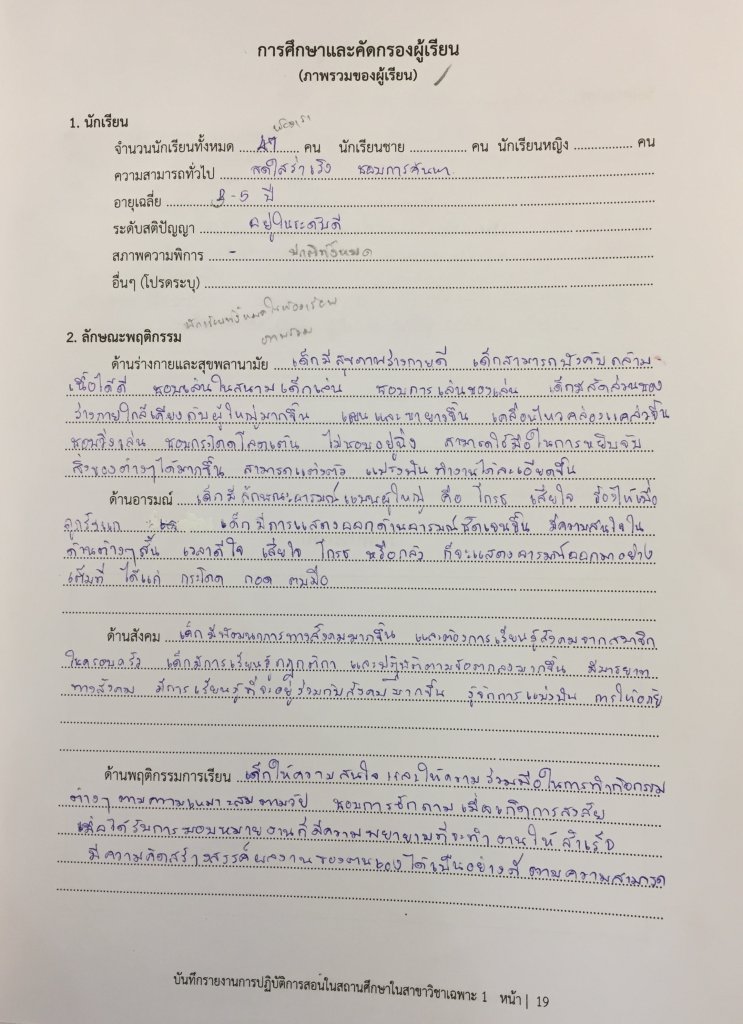 การศึกษาและคัดกรองผู้เรียน
(ภาพรวมของผู้เรียน)
1. นักเรียน
จำนวนนักเรียนทั้งหมด 47 คน นักเรียนชาย คน นักเรียนหญิง คน
ความสามารถทั่วไป สดใสร่าเริง ชอบการค้นหา
อายุเฉลี่ย 3-5 ปี
ระดับสติปัญญา อยู่ในระดับดี
สภาพความพิการ - ปกติทั้งหมด
อื่นๆ (โปรดระบุ)
นักเรียนทั้งหมดในห้องเรียน
ภาพรวม
2. ลักษณะพฤติกรรม
ด้านร่างกายและสุขพลานามัย เด็กมีสุขภาพร่างกายดี เด็กสามารถบังคับกล้าม
เนื้อได้ดี ชอบเล่นในสนามเด็กเล่น ชอบการเล่นของเล่น เด็กมีสัดส่วนของ
ร่างกายใกล้เคียงกับผู้ใหญ่มากขึ้น แขนและขายาวขึ้น เคลื่อนไหวคล่องแคล่วขึ้น
ชอบวิ่งเล่น ชอบกระโดดโลดเต้น ไม่ชอบอยู่นิ่ง สามารถใช้มือในการหยิบจับ
สิ่งของต่างๆได้มากขึ้น สามารถแต่งตัว แปรงฟัน ทำงานได้ละเอียดขึ้น
ด้านอารมณ์ เด็กมีลักษณะอารมณ์แบบผู้ใหญ่ คือ โกรธ เสียใจ ร้องไห้เมื่อ
ถูกรังแก เด็กมีการแสดงออกด้านอารมณ์ชัดเจนขึ้น มีความสนใจใน
ด้านต่างๆสั้น เวลาดีใจ เสียใจ โกรธ หรือกลัว ก็จะแสดงอารมณ์ออกมาอย่าง
เต็มที่ ได้แก่ กระโดด กอด ตบมือ
ด้านสังคม เด็กมีพัฒนาการทางสังคมมากขึ้น และต้องการเรียนรู้สังคมจากสมาชิก
ในครอบครัว เด็กมีการเรียนรู้กฎกติกา และปฏิบัติตามข้อตกลงมากขึ้น มีมารยาท
ทางสังคม มีการเรียนรู้ที่จะอยู่ร่วมกับสังคมมากขึ้น รู้จักการแบ่งปัน การให้อภัย
ด้านพฤติกรรมการเรียน เด็กให้ความสนใจ และให้ความร่วมมือในการทำกิจกรรม
ต่างๆ ตามความเหมาะสมตามวัย ชอบการซักถาม เมื่อเกิดการสงสัย
เมื่อได้รับการมอบหมายงานก็มีความพยายามที่จะทำงานให้สำเร็จ
มีความคิดสร้างสรรค์ผลงานของตนเองได้เป็นอย่างดี ตามความสามารถ
บันทึกรายงานการปฏิบัติการสอนในสถานศึกษาในสาขาวิชาเฉพาะ 1 หน้า | 19